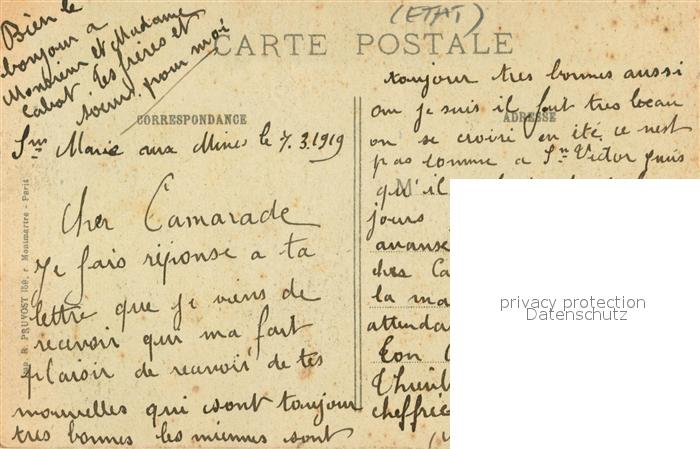 (ETAT)
CARTE POSTALE
Bien le
bonjour a
Monsieur et Madame
tes frères et
soeurs pour moi
CORRESPONDANCE
Ste Marie aux Mines le 7.3.1919
Cher Camarade
Je fais réponse a ta
lettre que je viens de
recevoir qui ma fait
plaisir de recevoir de tes
nouvelles qui sont toujour
tres bonnes les miennes sont
ADRESSE
toujour tres bonnes aussi
ou je suis il fait tres beau
on se croiré en été, ce nest
pas comme a St Victor puis
qu'il
jours
avanse
ches Ca
la ma
attenda
Ton
cheffrié
Imp. R. PRUVOST 159, r. Montmartre - Paris
privacy protection
Datenschutz